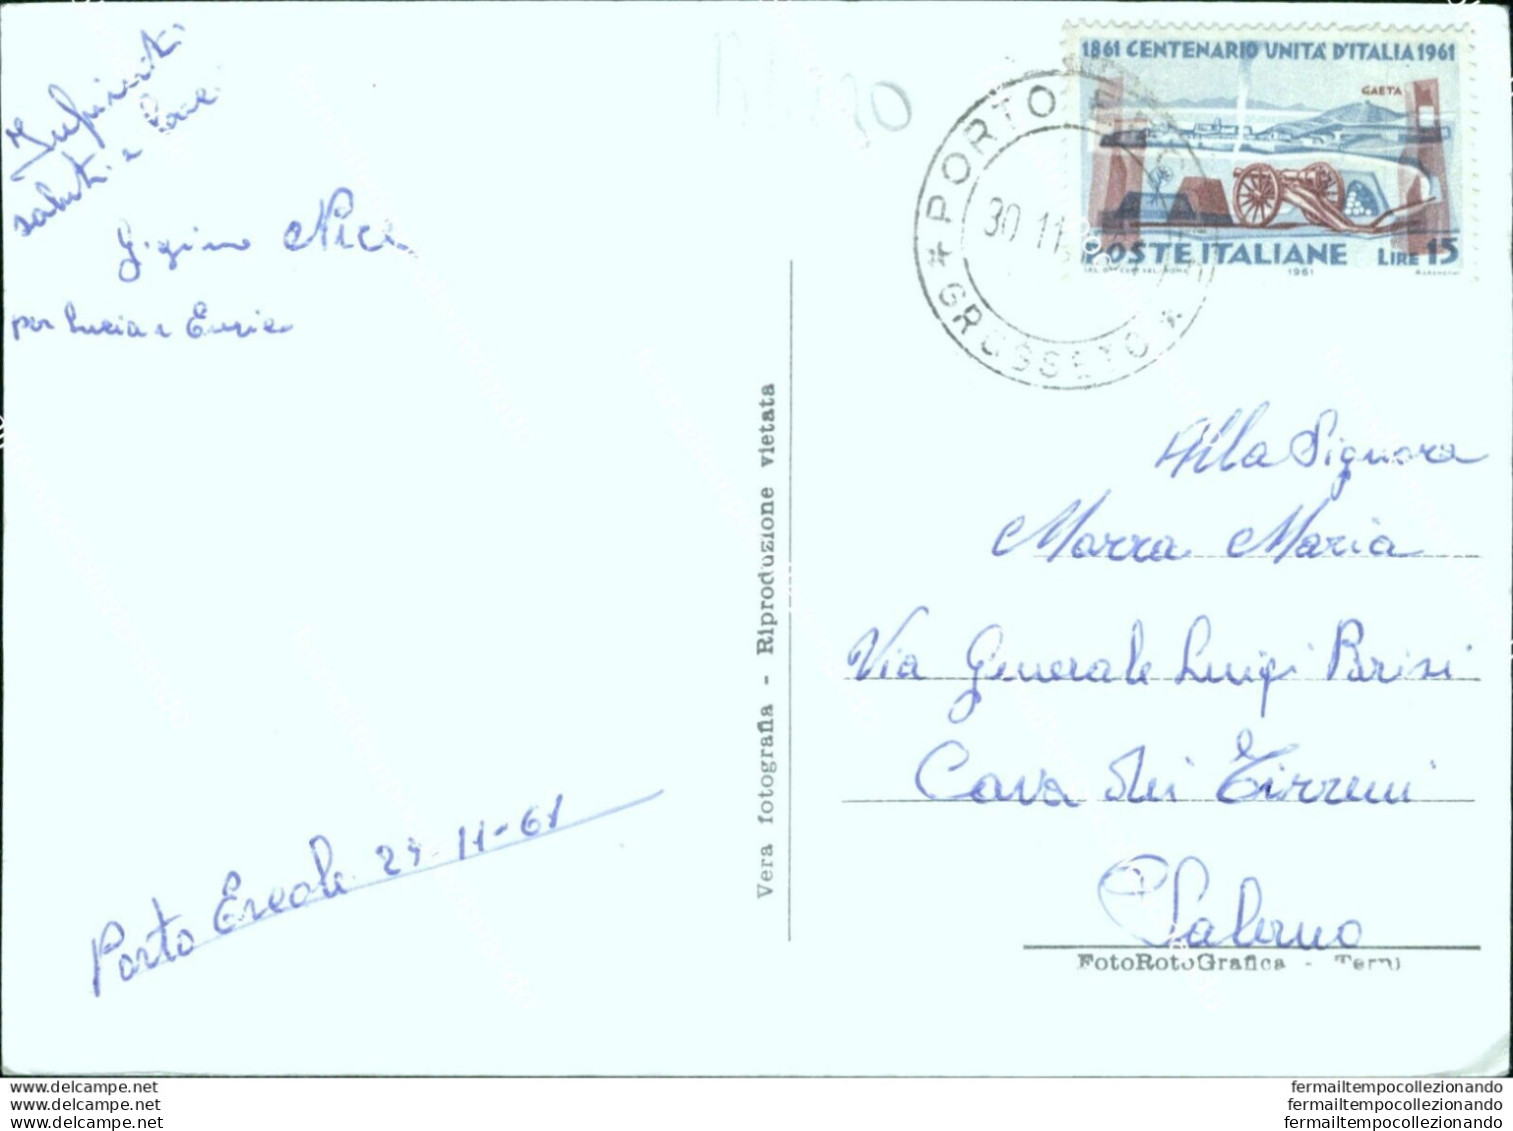 Infiniti
saluti e
Gigino
per Lucia e
Porto Ercole 29-11-61
Vera fotografia - Riproduzione vietata
1861 CENTENARIO UNITÀ D'ITALIA 1961
GAETA
POSTE ITALIANE LIRE 15
1961
PORTO
30 11
* GROSSETO *
Alla Signora
Marra Maria
Via Generale Luigi Parisi
Cava dei Tirreni
Salerno
FotoRotoGrafica - Terni
www.delcampe.net
www.delcampe.net
www.delcampe.net
fermailtempocollezionando
fermailtempocollezionando
fermailtempocollezionando